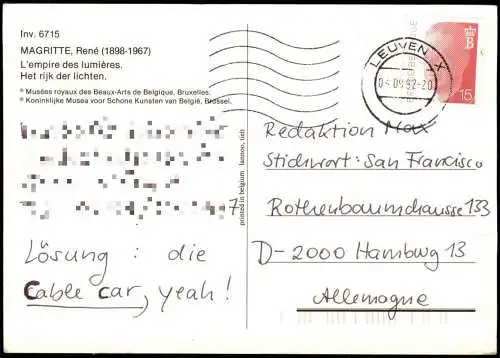 Inv. 6715
MAGRITTE, René (1898-1967)
L'empire des lumières.
Het rijk der lichten.
* Musées royaux des Beaux-Arts de Belgique, Bruxelles.
* Koninklijke Musea voor Schone Kunsten van België, Brussel.
printed in belgium lannoo, tielt
7
Lösung : die
Cable car, yeah !
LEUVEN X
B
15
Redaktion Max
Stichwort: San Francisco
Rothenbaumchaussee 133
D-2000 Hamburg 13
Allemagne